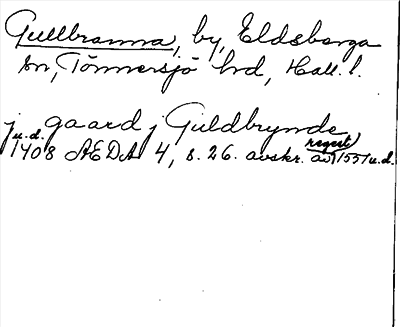 Gullbranna, by, Eldsberga
sn, Tönnersjö hd, Hall. l.
j gaard j Guldbrynde
u.d. 1408 ÆDA 4, s. 26. avskr. av regest 1551 u.d.